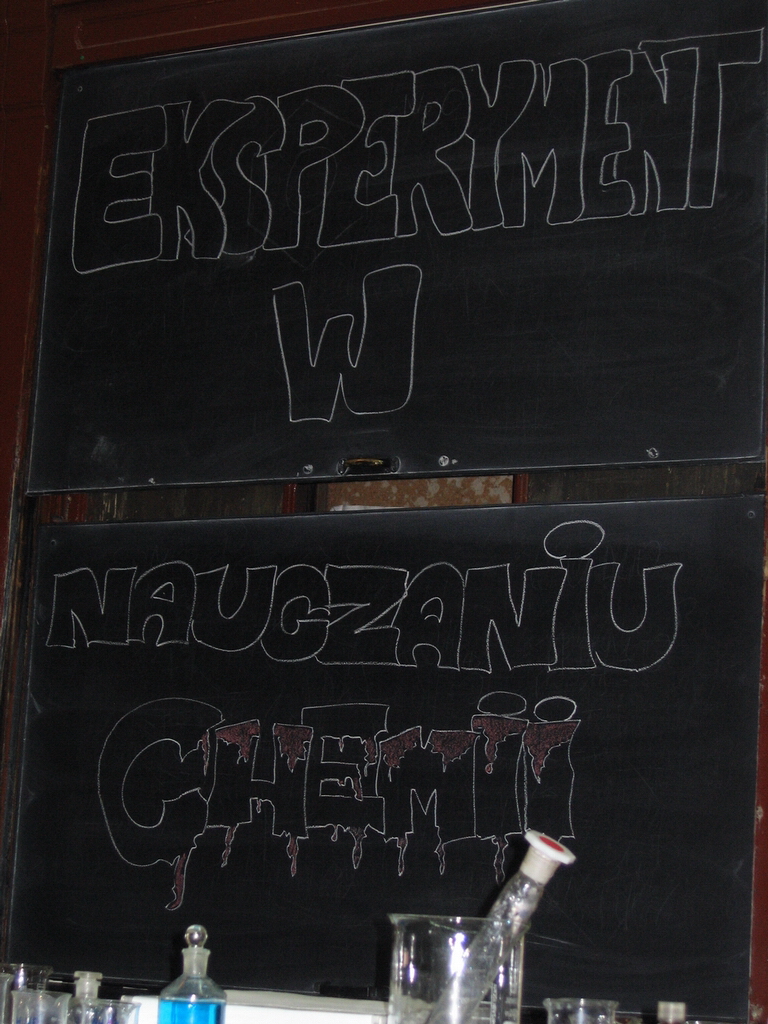 EKSPERYMENT
W
NAUCZANiU
CHEMii